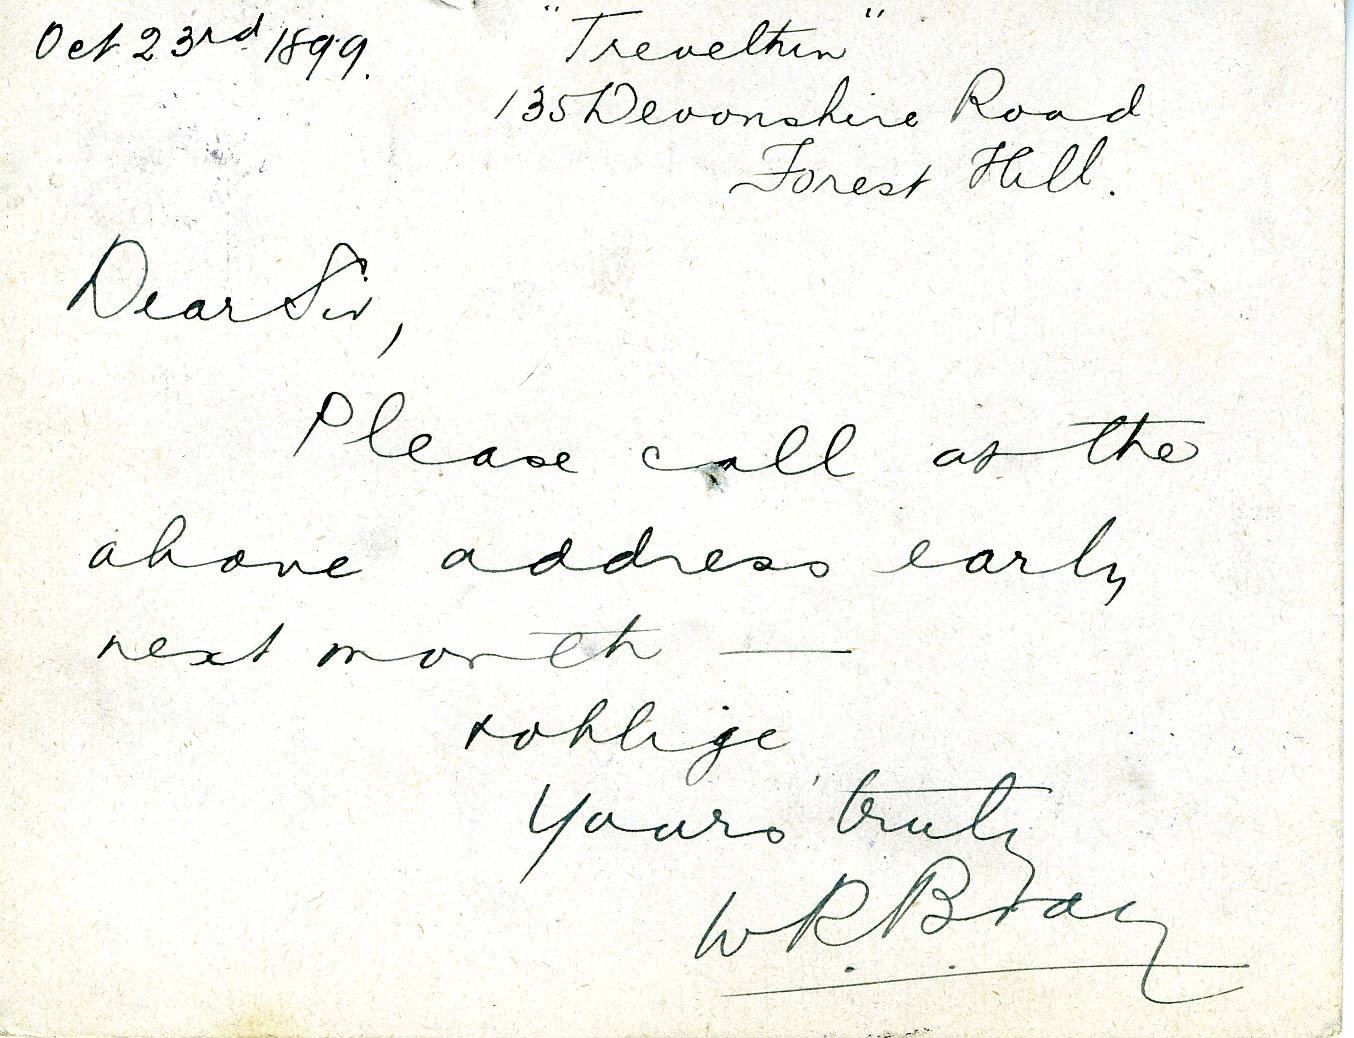 Oct 23rd 1899.
"Trevethin"
135 Devonshire Road
Forest Hill.
Dear Sir,
Please call at the
above address early
next month —
& oblige
Yours truly
W. R. Bray